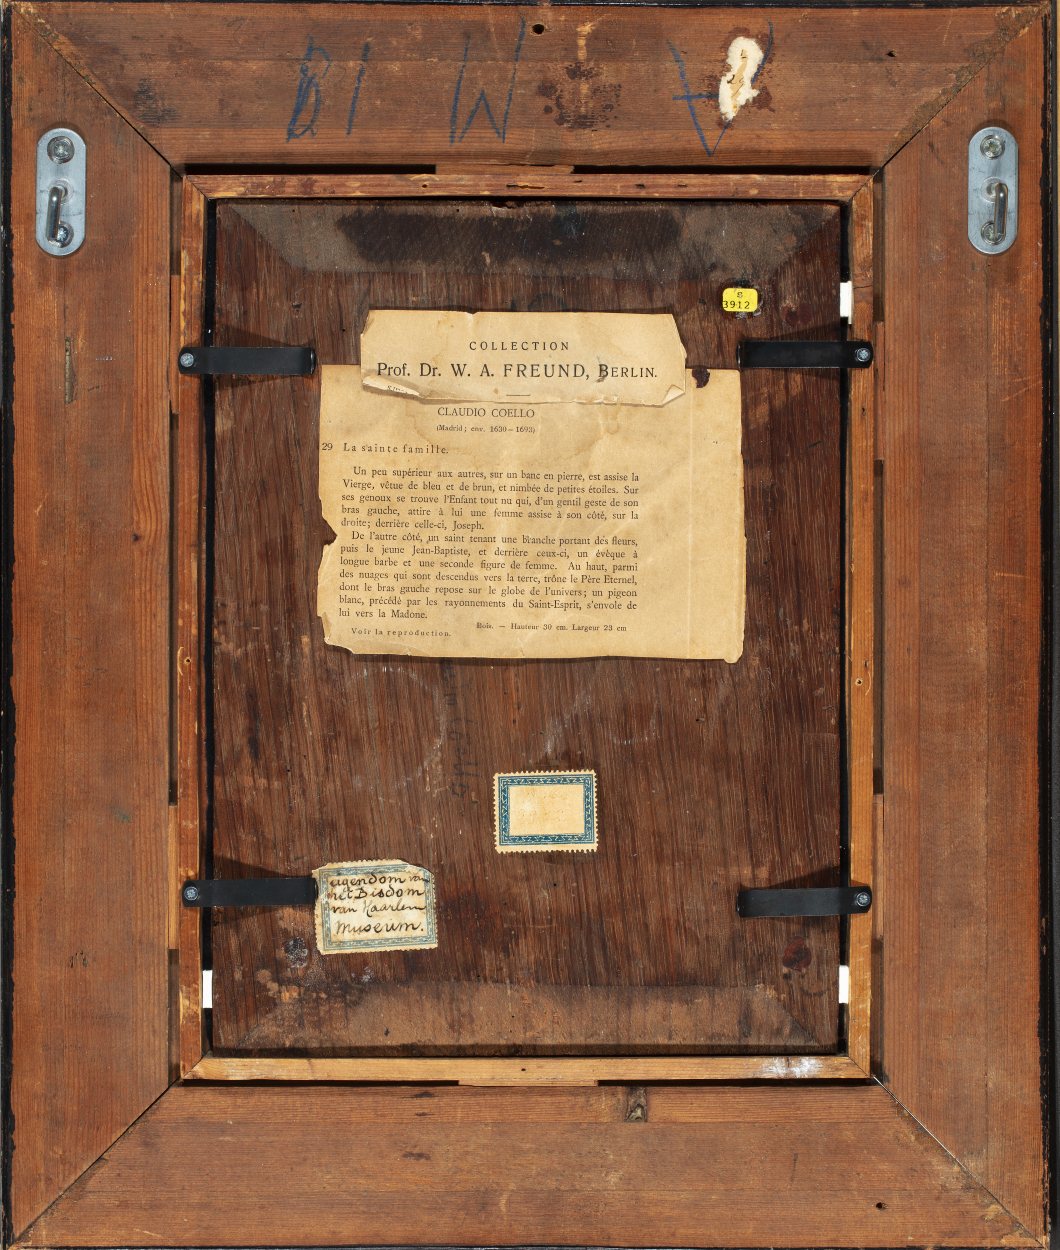 BI M A
S
3912
COLLECTION
Prof. Dr. W. A. FREUND, BERLIN.
CLAUDIO COELLO
(Madrid; env. 1630–1693)
29 La sainte famille.
Un peu supérieur aux autres, sur un banc en pierre, est assise la
Vierge, vêtue de bleu et de brun, et nimbée de petites étoiles. Sur
ses genoux se trouve l'Enfant tout nu qui, d'un gentil geste de son
bras gauche, attire à lui une femme assise à son côté, sur la
droite; derrière celle-ci, Joseph.
De l'autre côté, un saint tenant une blanche portant des fleurs,
puis le jeune Jean-Baptiste, et derrière ceux-ci, un évêque à
longue barbe et une seconde figure de femme. Au haut, parmi
des nuages qui sont descendus vers la terre, trône le Père Eternel,
dont le bras gauche repose sur le globe de l'univers; un pigeon
blanc, précédé par les rayonnements du Saint-Esprit, s'envole de
lui vers la Madone.
Bois. — Hauteur 30 cm. Largeur 23 cm
Voir la reproduction.
eigendom van
het Bisdom
van Haarlem
Museum.